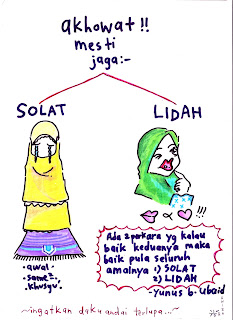 akhowat!!
mesti
jaga:-
SOLAT
LIDAH
• awal.
• same².
• khusyu'.
Ada 2 perkara yg kalau
baik keduanya maka
baik pula seluruh
amalnya 1) SOLAT
2) LIDAH
-Yunus b. Ubaid
~ingatkan daku andai terlupa...~